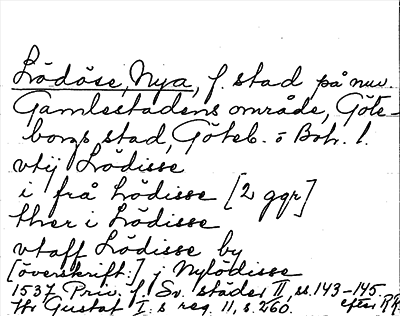 Lödöse, Nya, f. stad på nuv.
Gamlestadens område, Göte-
borgs stad, Göteb. o Boh. l.
vtij Lödisse
i frå Lödisse [2 ggr]
ther i Lödisse
vtaff Lödisse by
[överskrift:] j Nylödisse
1537 Priv. f. Sv. städer II, ss. 143-145
Hr Gustaf I:s reg. 11, s. 260. efter RR